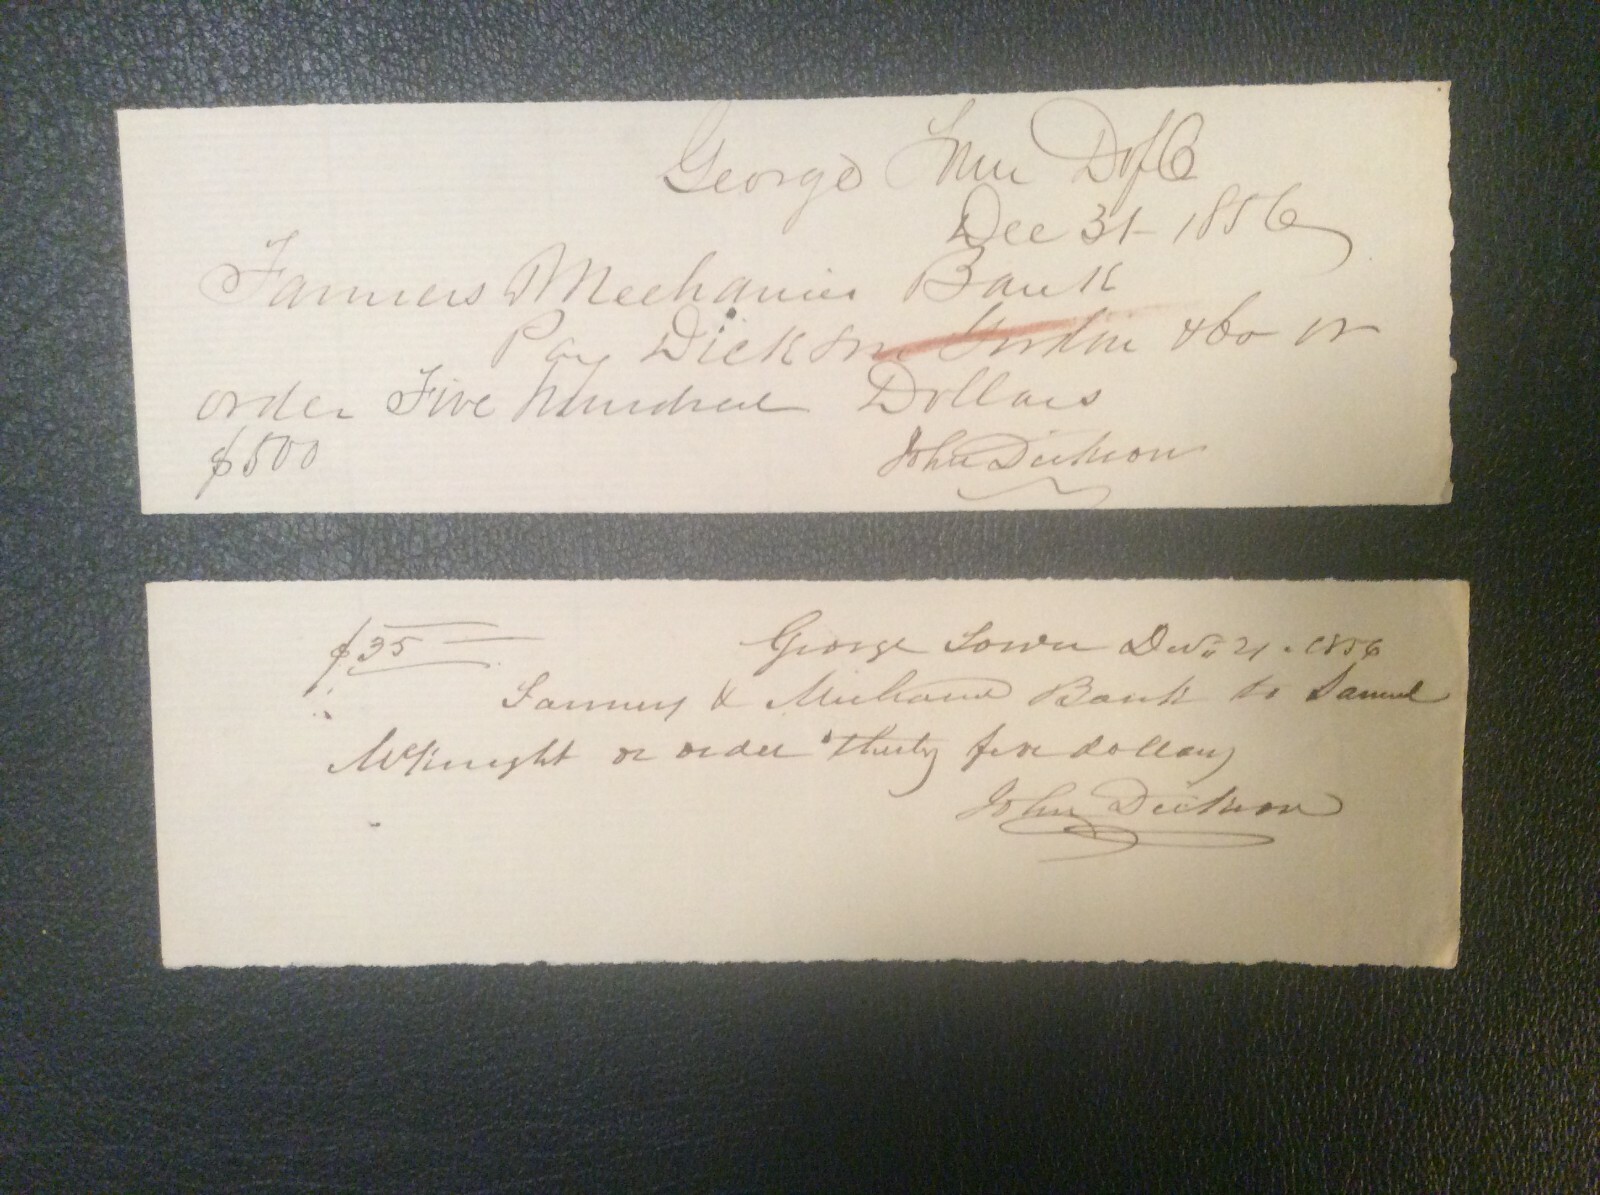 George Town D of C
Dec 31 1856
Farmers Mechanics Bank
Pay Dickson Gordon & Co or
order Five hundred Dollars
$500 John Dickson
$35 George Town 1856
Farmers & Mechanics Bank to Samuel
McKnight or order thirty five dollars
John Dickson